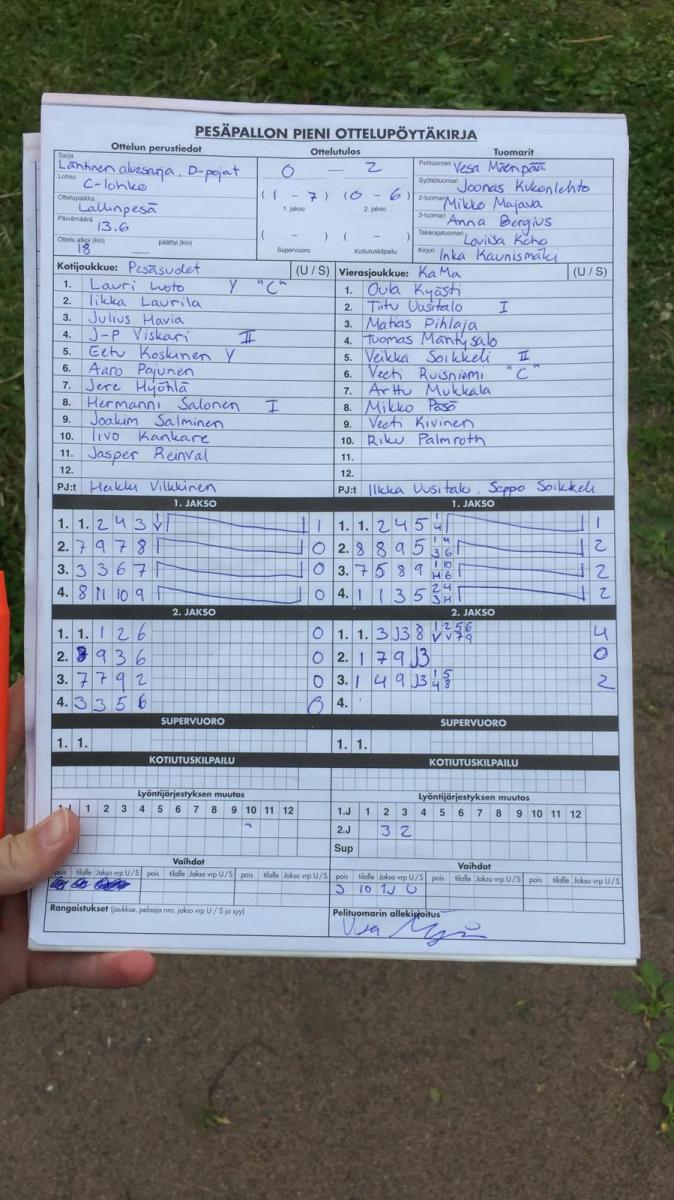 PESÄPALLON PIENI OTTELUPÖYTÄKIRJA
Ottelun perustiedot
Sarja Läntinen aluesarja, D-pojat
Lohko C-lohko
Ottelupaikka Lallinpesä
Päivämäärä 13.6
Ottelu alkoi (klo) 18 — päättyi (klo)
Ottelutulos
0 — 2
(1 - 7) (0 - 6)
1. jakso 2. jakso
( - ) ( - )
Supervuoro Kotiutuskilpailu
Tuomarit
Pelituomari Vesa Mäenpää
Syöttötuomari Joonas Kukonlehto
2-tuomari Mikko Majava
3-tuomari Anna Bergius
Takarajatuomari Loviisa Koho
Kirjuri Inka Kaunismäki
Kotijoukkue: Pesäsudet (U / S)
1. Lauri Luoto Y "C"
2. Iikka Laurila
3. Julius Havia
4. J-P Viskari II
5. Eetu Koskinen Y
6. Aaro Pajunen
7. Jere Hyöhlä
8. Hermanni Salonen I
9. Joakim Salminen
10. Iivo Kankare
11. Jasper Reinval
12.
PJ:t Heikki Vilkkinen
Vierasjoukkue: KaMa (U / S)
1. Oula Kyösti
2. Tiitu Uusitalo I
3. Matias Pihlaja
4. Tuomas Mäntysalo
5. Veikka Soikkeli II
6. Veeti Ruisniemi "C"
7. Arttu Mukkala
8. Mikko Pesö
9. Veeti Kivinen
10. Riku Palmroth
11.
12.
PJ:t Ilkka Uusitalo, Seppo Soikkeli
1. JAKSO
1. 1. 2 4 3 1 V 1
2. 7 9 7 8 0
3. 3 3 6 7 0
4. 8 11 10 9 0
2. JAKSO
1. 1. 1 2 6 0
2. 8 9 3 6 0
3. 7 7 9 2 0
4. 3 3 5 6 0
SUPERVUORO
1. 1.
KOTIUTUSKILPAILU
1. JAKSO
1. 1. 2 4 5 1 4 1
2. 8 8 9 5 1 4 3 6 2
3. 7 5 8 9 1 10 H 6 2
4. 1 1 3 5 2 4 3 H 2
2. JAKSO
1. 1. 3 J3 8 1 2 5 6 V V 7 9 4
2. 1 7 9 J3 0
3. 1 4 9 J3 1 5 4 8 2
4.
SUPERVUORO
1. 1.
KOTIUTUSKILPAILU
Lyöntijärjestyksen muutos
1.J 1 2 3 4 5 6 7 8 9 10 11 12
Vaihdot
pois tilalle Jakso vrp U / S pois tilalle Jakso vrp U / S pois tilalle Jakso vrp U / S
Rangaistukset (joukkue, pelaaja nro, jakso vrp U / S ja syy)
Lyöntijärjestyksen muutos
1.J 1 2 3 4 5 6 7 8 9 10 11 12
2.J 3 2
Sup
Vaihdot
pois tilalle Jakso vrp U / S pois tilalle Jakso vrp U / S pois tilalle Jakso vrp U / S
3 10 1J U
Pelituomarin allekirjoitus
Vesa